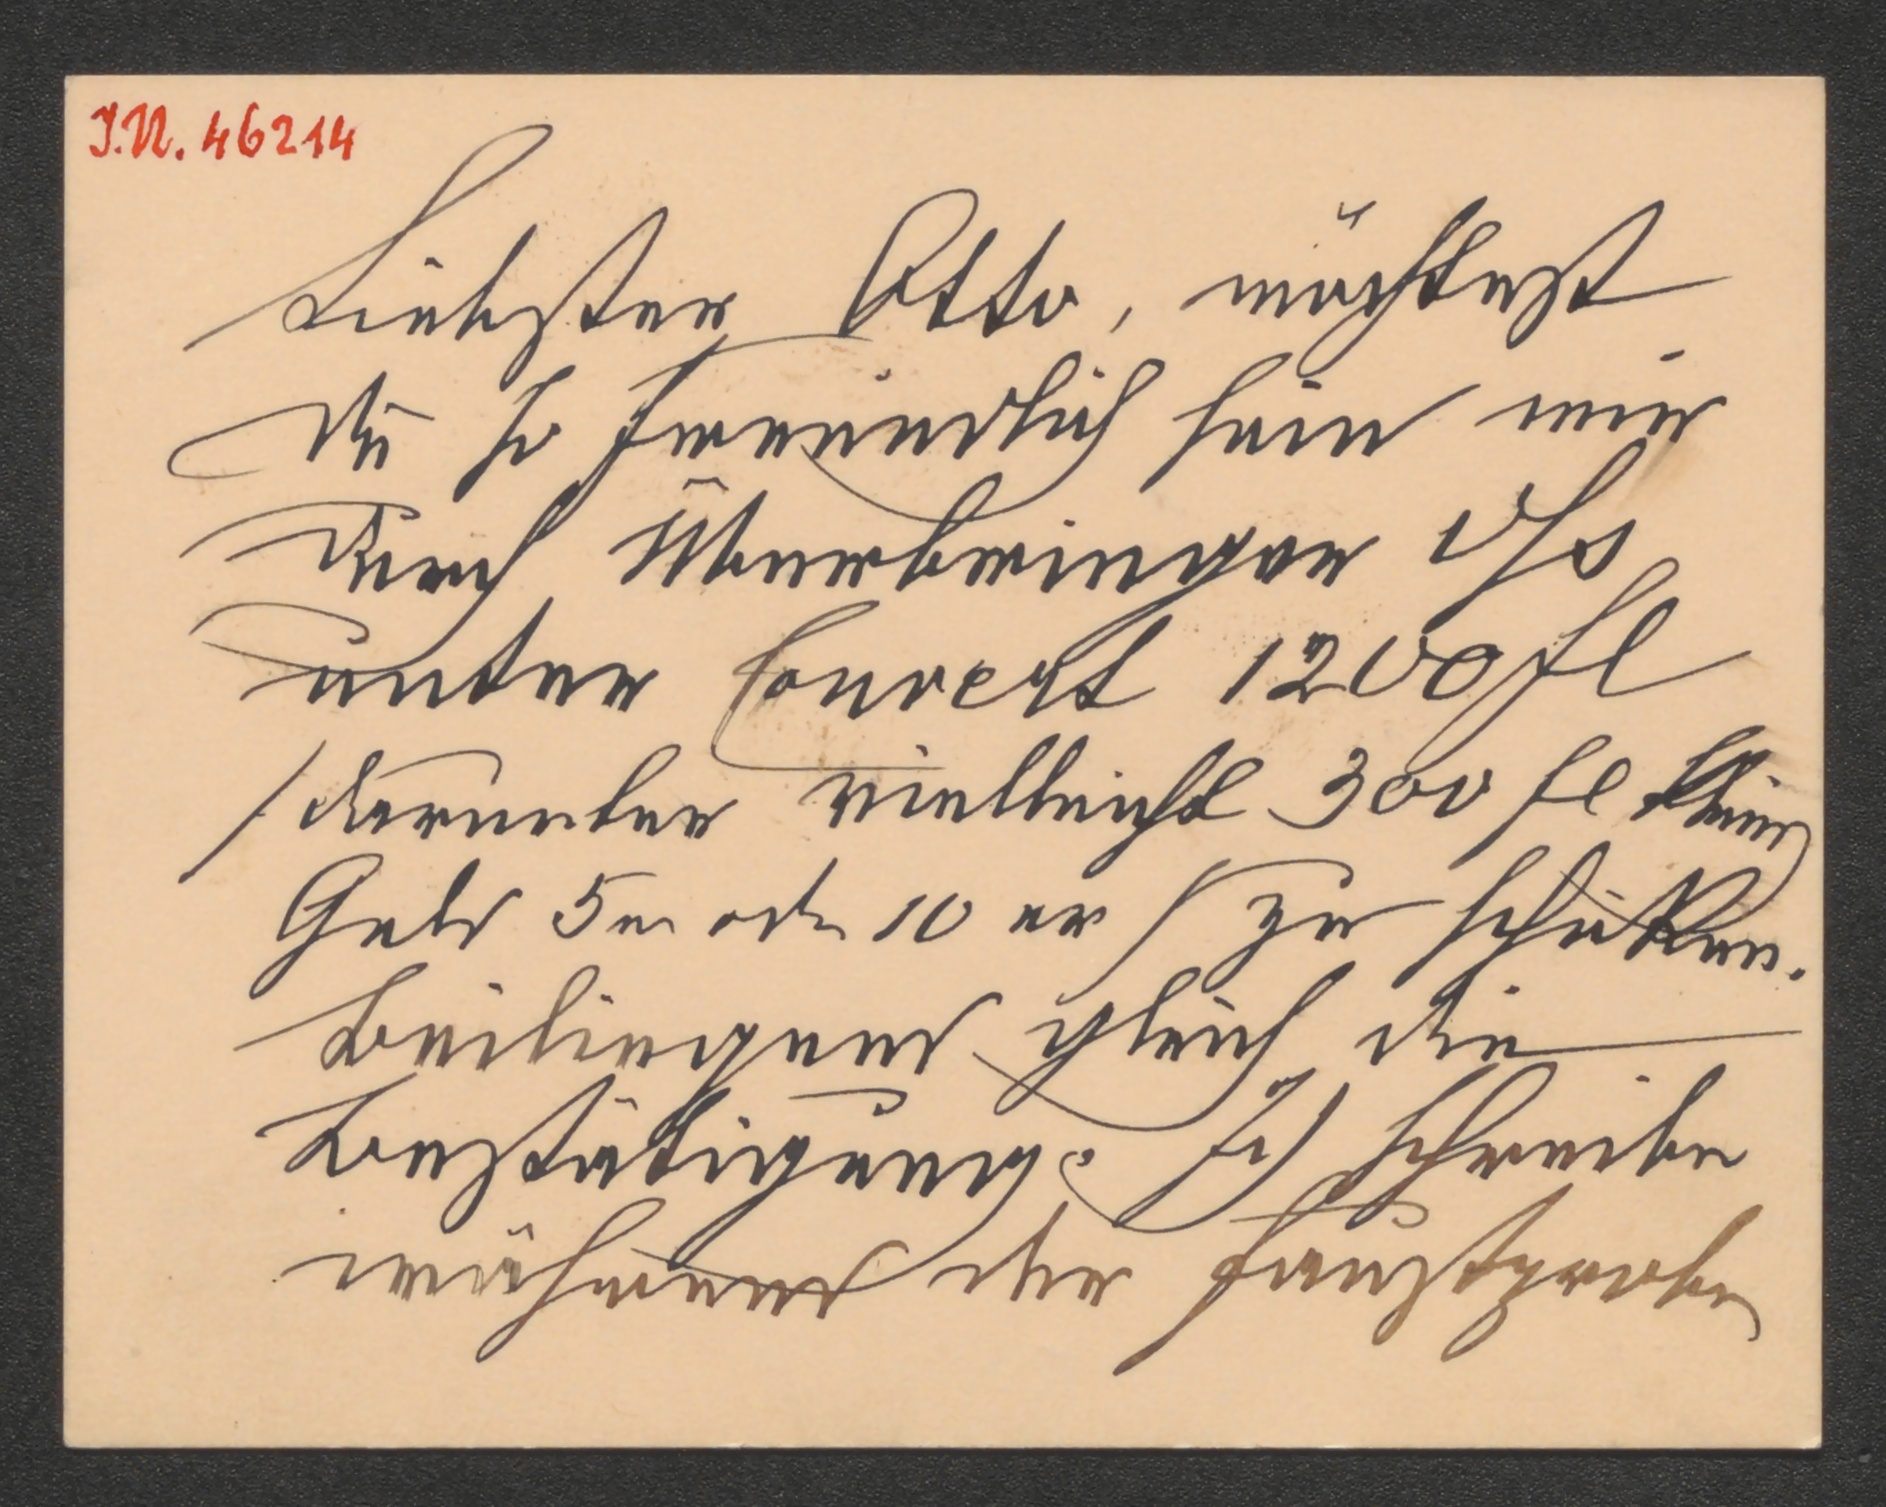 I.N. 46214
Liebster Otto, möchtest
Du so freundlich sein mir
durch Überbringer ds
unter Couvert 1200 fl
/darunter vielleicht 300 fl klein
Geld 5er oder 10 er/ zu schicken.
Beiliegend gleich die
Bestätigung. Ich schreibe
während der Faustprobe